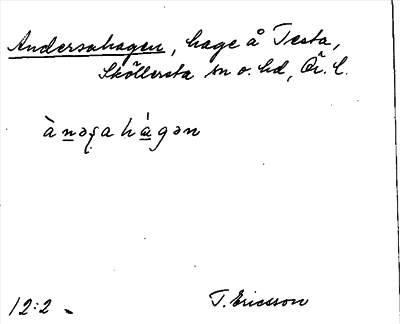 Andersahagen, hage å Testa,
Sköllersta sn o. hd, Ör. l.
ànəʂa hágən
12:2
T. Ericsson